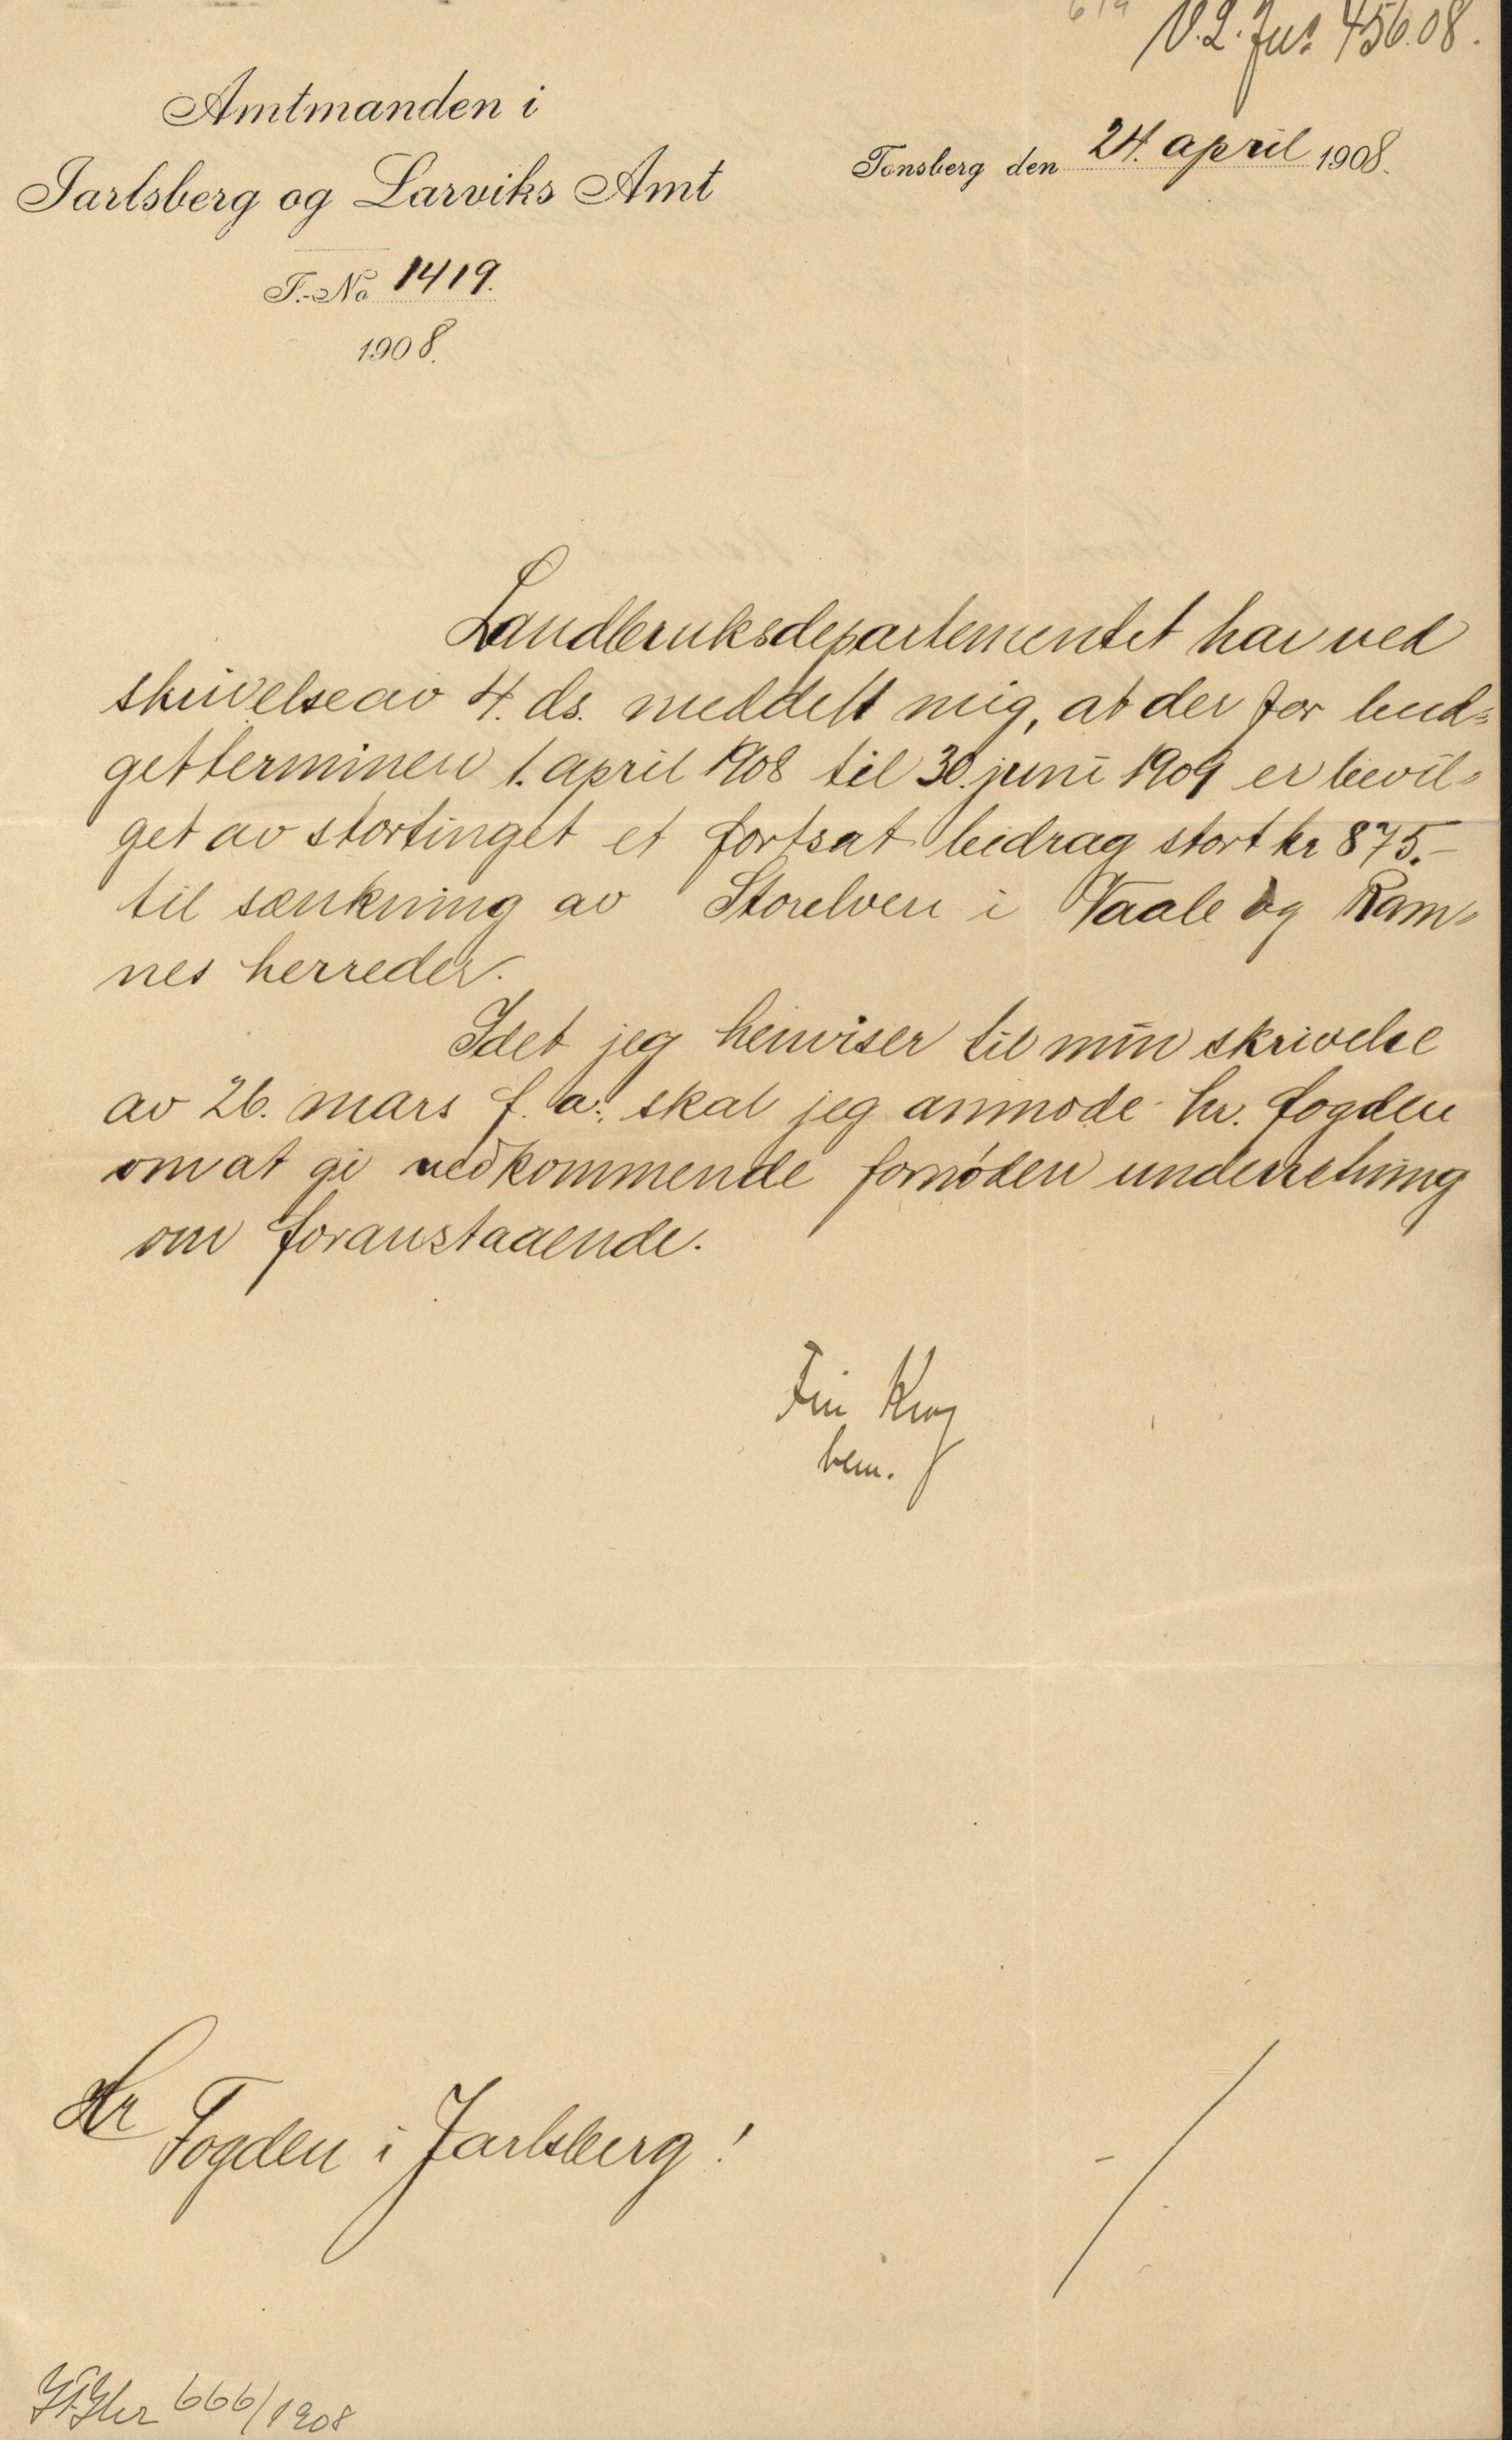 V.2. Jus. 456.08.
Amtmanden i
Jarlsberg og Larviks Amt
J.-No 1419.
1908.
Tønsberg den 24. april 1908.
Landbruksdepartementet har ved
skrivelse av 4. ds. meddelt mig, at der for bud=
getterminen 1. april 1908 til 30. juni 1909 er bevil=
get av stortinget et fortsat bidrag stort kr 875.-
til sænkning av Storelven i Vaale og Ram=
nes herreder.
Idet jeg henviser til min skrivelse
av 26. mars f. a. skal jeg anmode hr. fogden
om at gi vedkommende fornøden underretning
om foranstaaende.
Fin Krog
bem.
Hr
Fogden i Jarlsberg!
666/1908